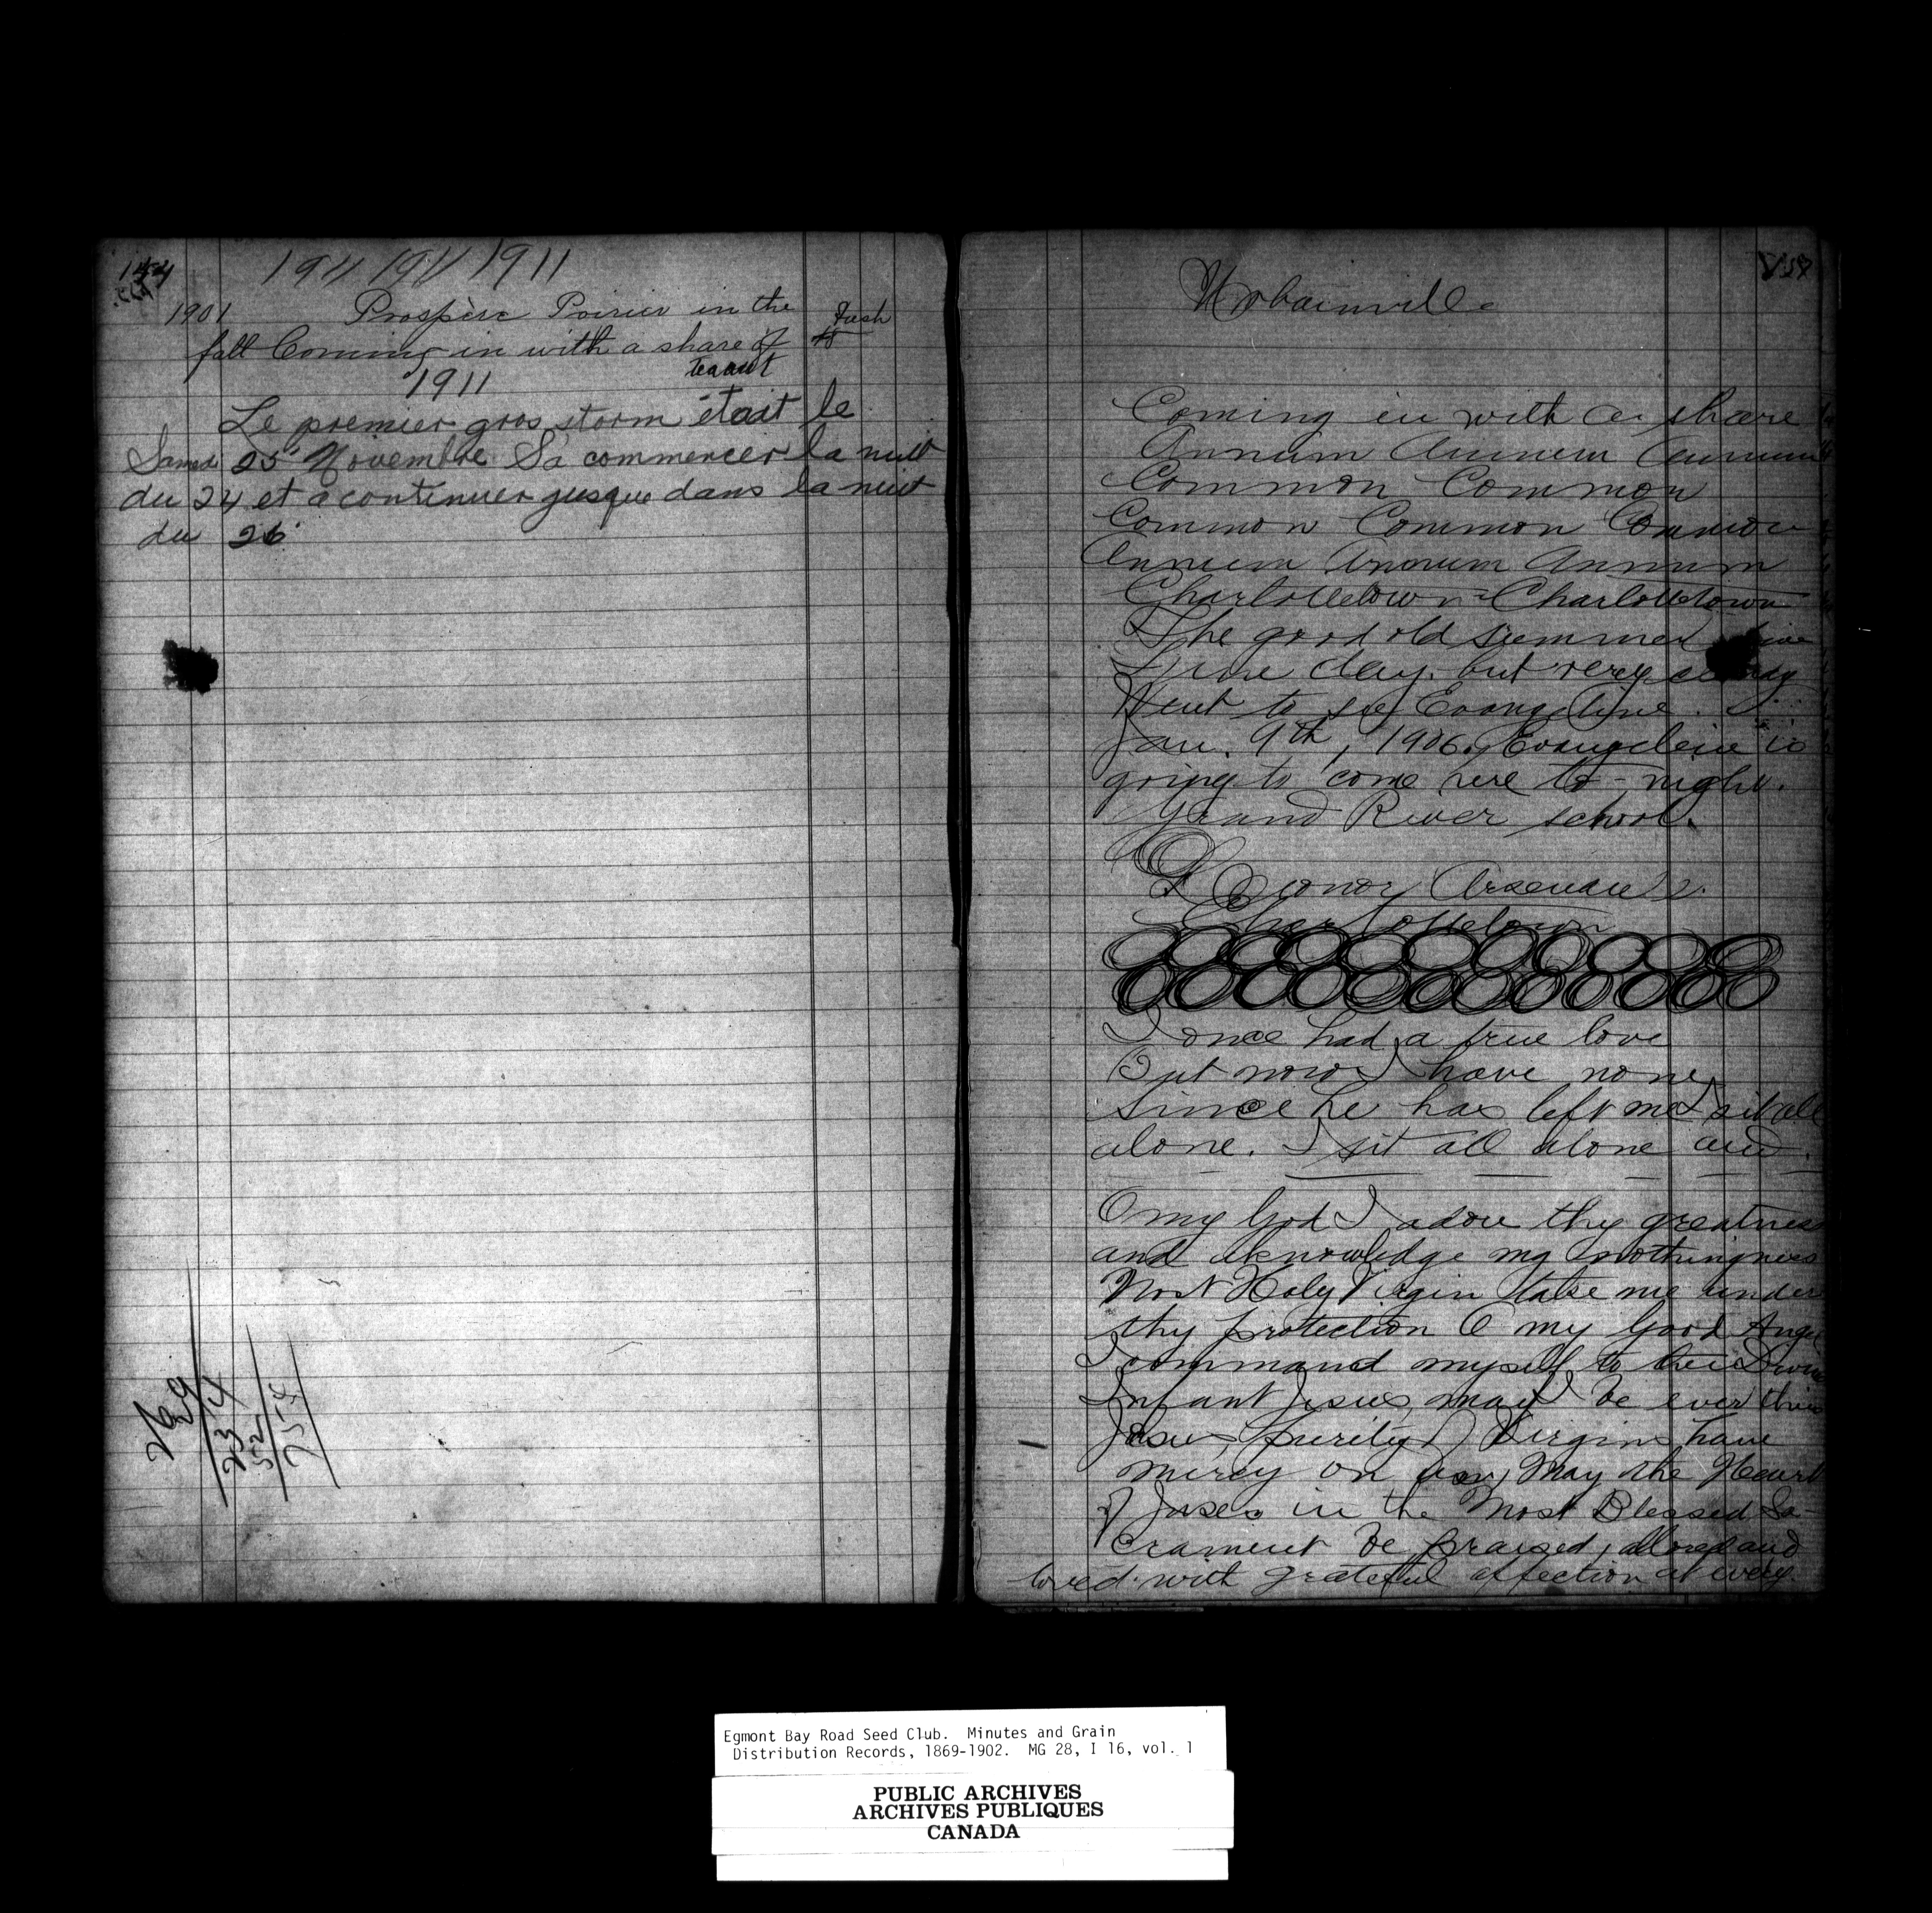 144
1911 1911 1911
1901 Prospère Poirier in the
fall Coming in with a share of
1911
Le premier gros storm était le
Samedi 25 Novembre Sa commencer la nuit
du 24 et a continuer jusque dans la nuit
du 26
269
234
52
254
Urbainville
Coming in with a share
Annum Annum Annum
Common Common
Common Common Common
Annum Annum Annum
Charlottetown Charlottetown
The good old summer time
Fine day. but very
Went to see Evangeline.
Jan. 9th, 1906. Evangeline is
going to come here to-night.
Grand River school.
Leonor Arsenault.
Charlottetown
I once had a true love
But now I have none
Since he has left me I sit all
alone. I sit all alone and
O my God I adore thy greatness
and aknowledge my nothingness
Most Holy Virgin take me under
thy protection O my Good Angel
I command myself to thee Divine
Infant Jesus, may I be ever thine
Jesus, purity of Virgins have
mercy on May the Heart
of Jesus in the Most Blessed Sa-
crament be praised, adored and
loved with grateful affection at every
Egmont Bay Road Seed Club. Minutes and Grain
Distribution Records, 1869-1902. MG 28, I 16, vol. 1
PUBLIC ARCHIVES
ARCHIVES PUBLIQUES
CANADA